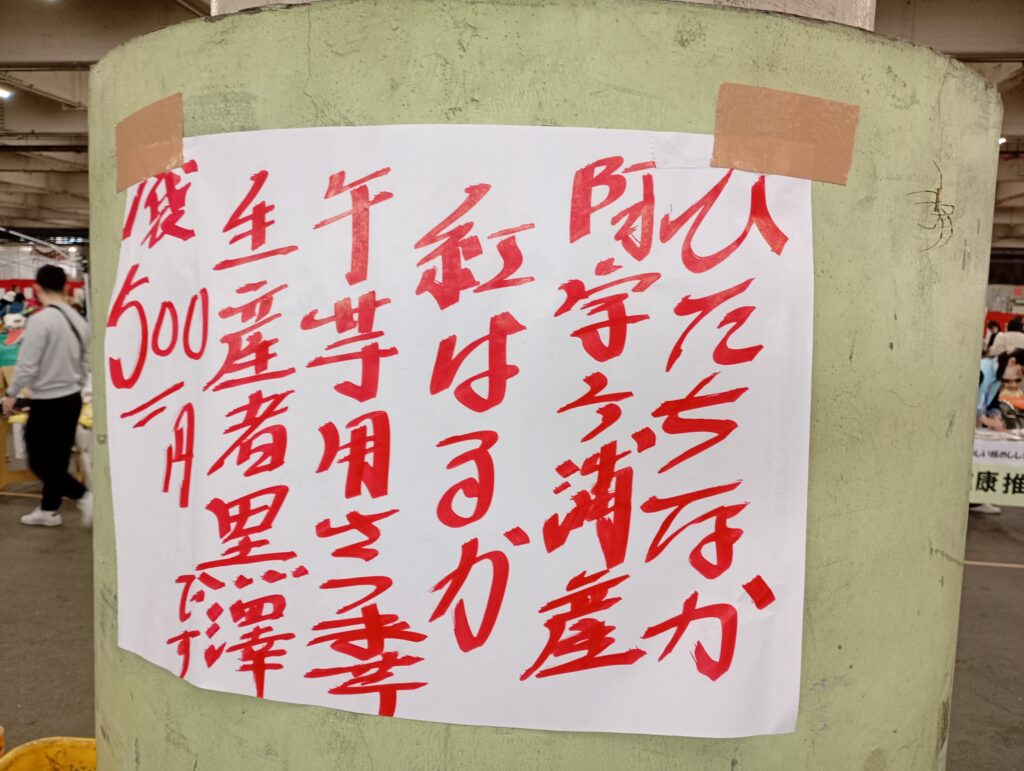 ひたちなか
阿字ヶ浦産
紅はるか
干芋用さつま芋
生産者黒澤です
1袋500円
康推